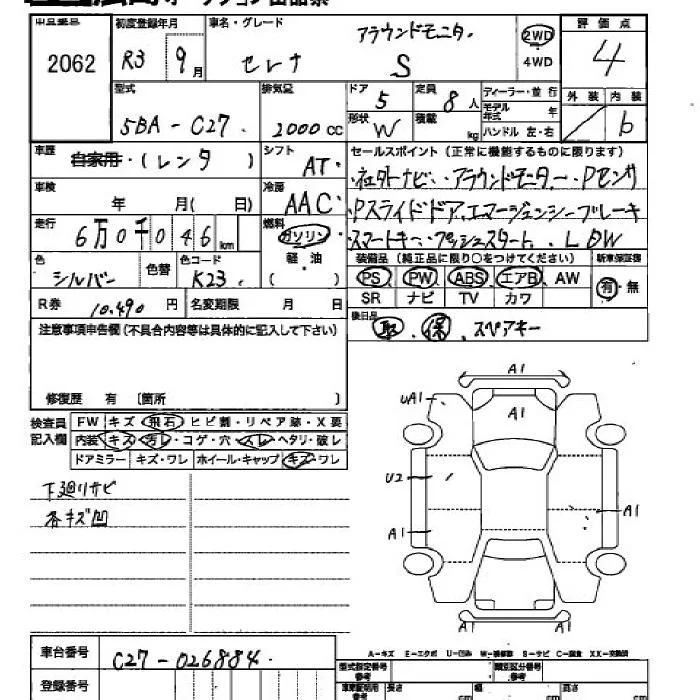 オークション出品票
出品番号 初度登録年月 車名・グレード アラウンドモニター 2WD 評価点
2062 R3 9月 セレナ S 4WD 4
型式 排気量 ドア 定員 ディーラー・並行 外装 内装
5BA-C27 2000cc 5 8人 モデル年式 年 b
形状 W 積載 kg ハンドル 左・右
車歴 自家用・(レンタ) シフト AT セールスポイント(正常に機能するものに限ります)
車検 年 月(日) 冷房 AAC 社外ナビ・アラウンドモニター・Pセンサ
走行 6万0千046km 燃料 ガソリン Pスライドドア.エマージェンシーブレーキ
軽油 スマートキー・プッシュスタート.LDW
色 シルバー 色替 色コード K23 装備品(純正品に限り○をつけてください) 新車保証書
PS PW ABS エアB AW 有・無
R券 10.490円 名変期限 月 日 SR ナビ TV カワ
注意事項申告欄(不具合内容等は具体的に記入して下さい) 後日品 取.保.スペアキー
修復歴 有 〔箇所 〕
検査員記入欄 FW キズ・飛石・ヒビ割・リペア跡・X要
内装 キズ・汚レ・コゲ・穴・スレ・ヘタリ・破レ
ドアミラー キズ・ワレ ホイール・キャップ キズ・ワレ
下廻りサビ
各キズ凹
A1
UA1
A1
U2
A1
A1
A1
A-キズ E-エクボ U-凹み W-補修跡 S-サビ C-腐食 XX-交換済
車台番号 C27-026884
登録番号
型式指定番号 参考 類別区分番号 参考
車庫証明用 参考 長さ cm 幅 cm 高さ cm